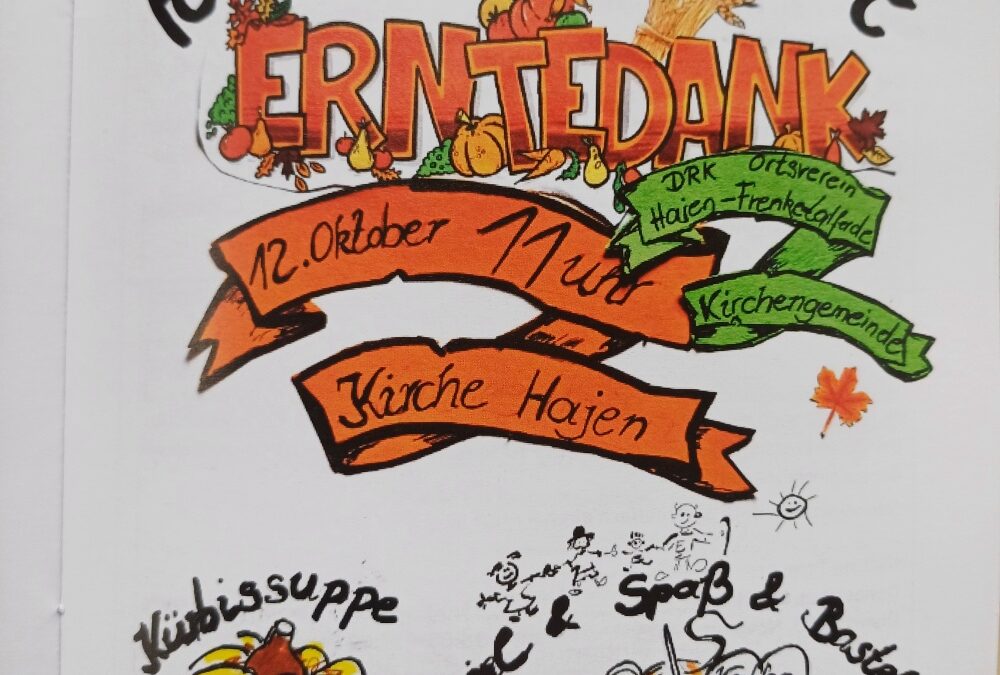 ERNTEDANK
DRK Ortsverein
Hajen-Frenketalfade
12. Oktober 11 Uhr
Kirchengemeinde
Kirche Hajen
Kürbissuppe
& Spaß &